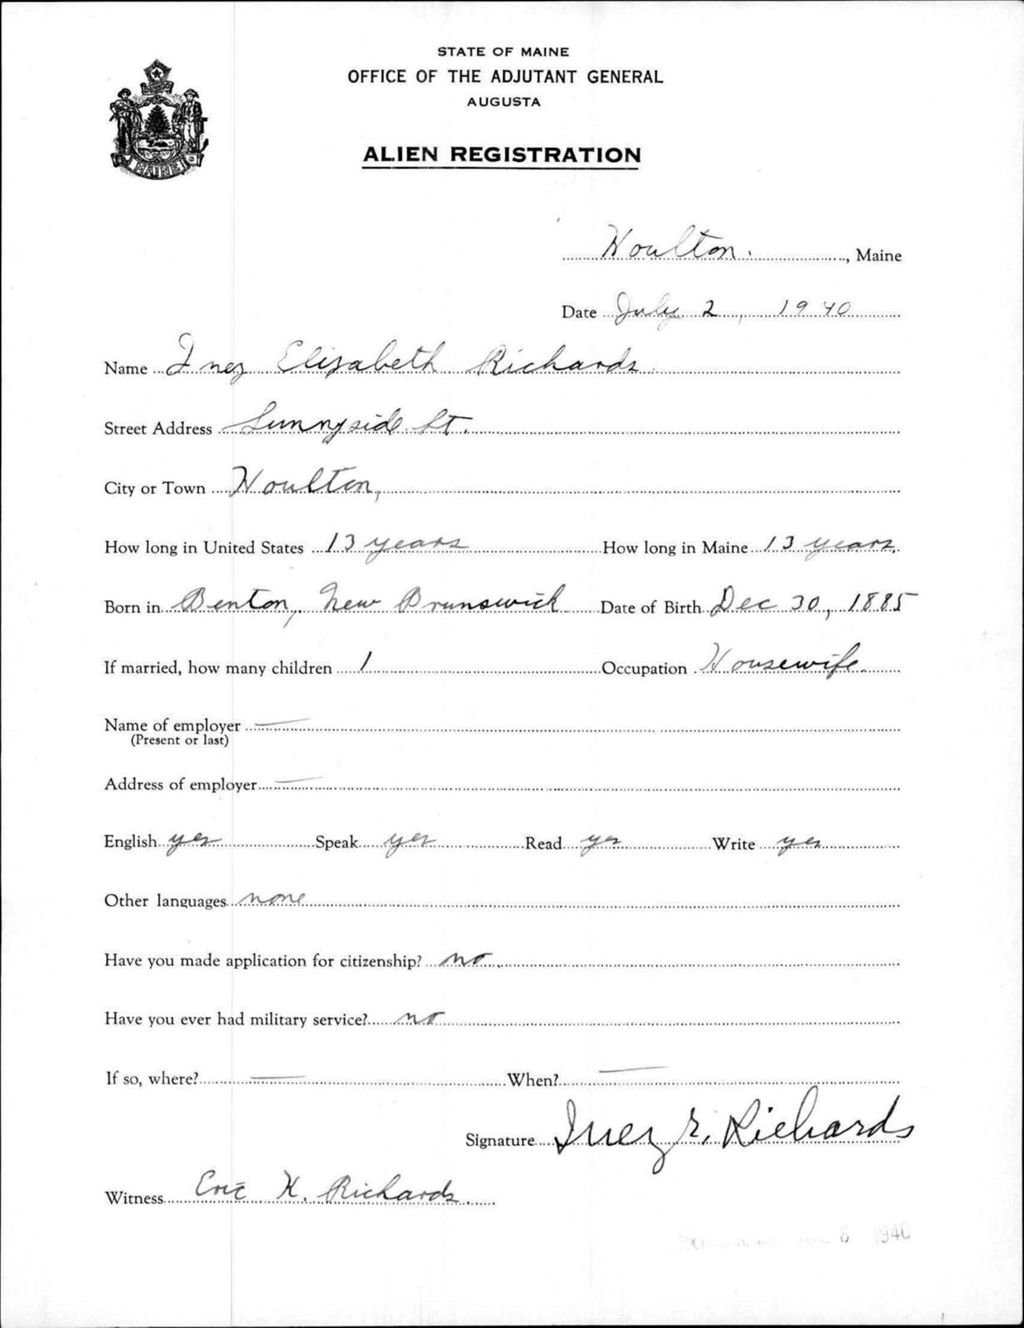 STATE OF MAINE
OFFICE OF THE ADJUTANT GENERAL
AUGUSTA
ALIEN REGISTRATION
MAINE
Houlton, Maine
Date July 2, 1940
Name Inez Elizabeth Richards
Street Address Sunnyside St.
City or Town Houlton,
How long in United States 13 years How long in Maine 13 years
Born in Benton, New Brunswick Date of Birth Dec 30, 1885
If married, how many children 1 Occupation Housewife
Name of employer —
(Present or last)
Address of employer —
English yes Speak yes Read yes Write yes
Other languages none
Have you made application for citizenship? no
Have you ever had military service? no
If so, where? — When? —
Signature Inez E. Richards
Witness Eric K. Richards
8 1940